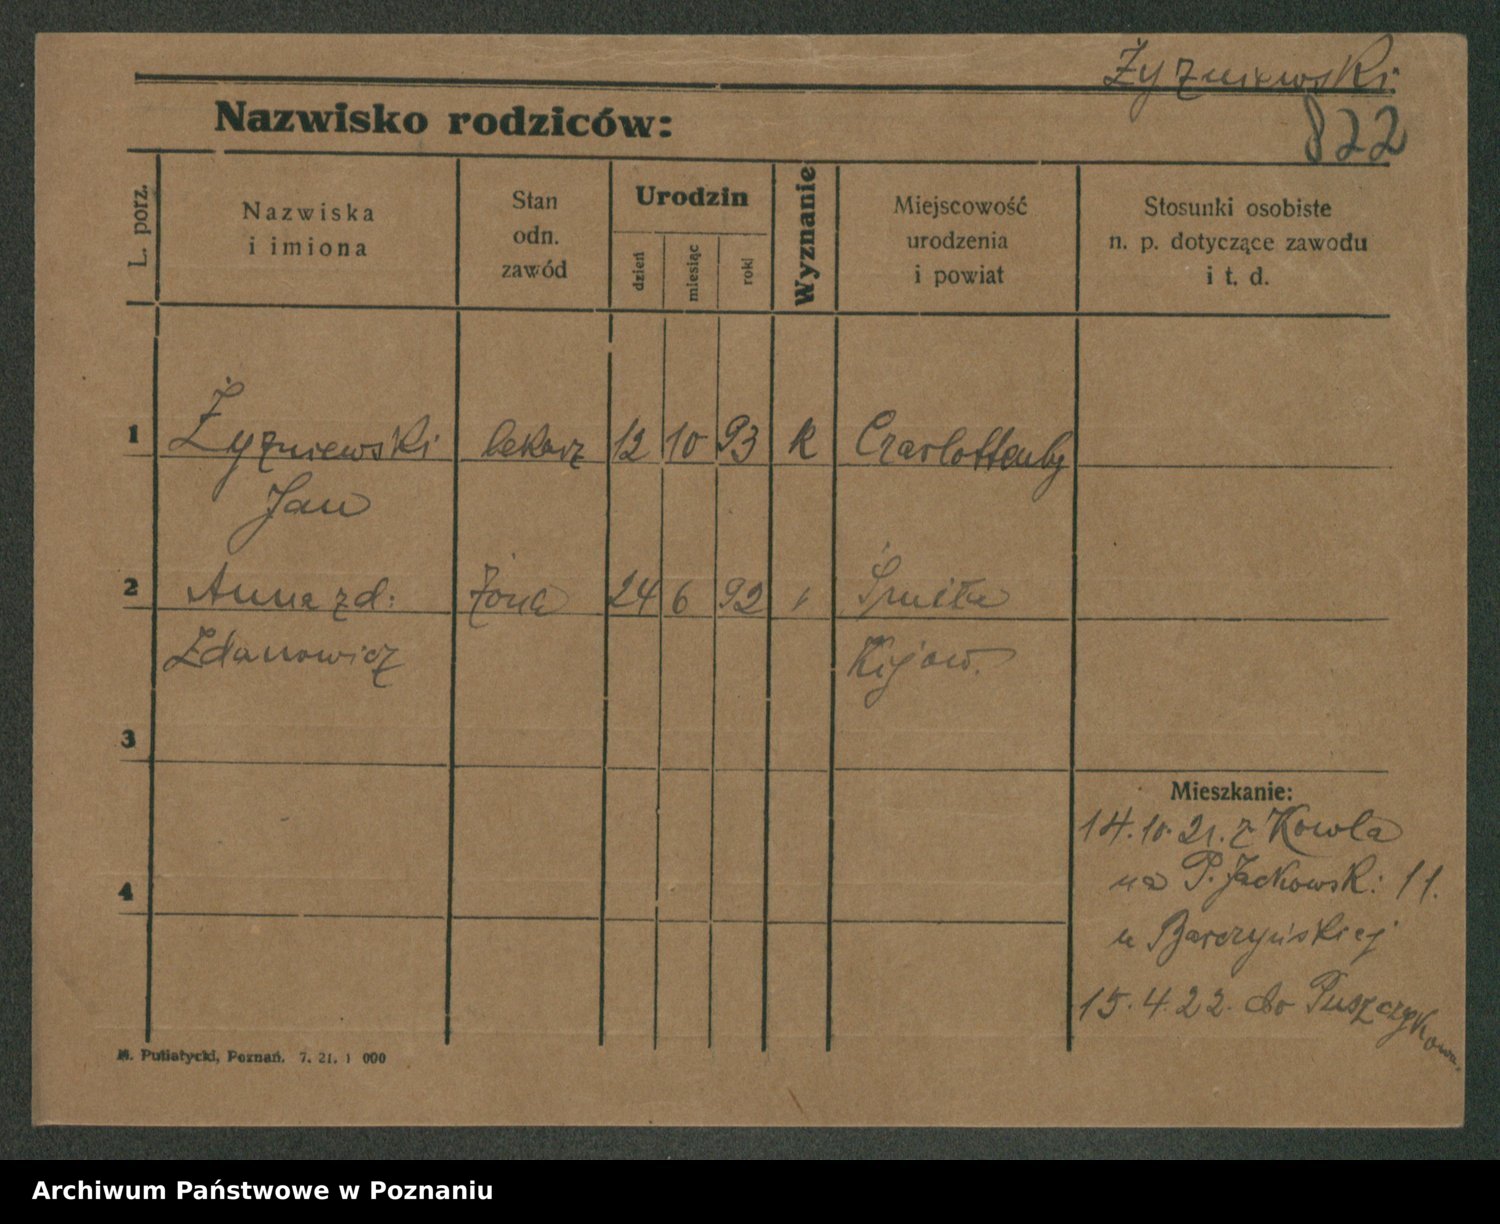 Żyzniewski
Nazwisko rodziców:
822
L. porz.
Nazwiska
i imiona
Stan
odn.
zawód
Urodzin
dzień
miesiąc
rok
Wyznanie
Miejscowość
urodzenia
i powiat
Stosunki osobiste
n. p. dotyczące zawodu
i t. d.
1 Żyzniewski lekarz 12 10 93 k Czarlottenbg
Jan
2 Anna z d: żona 24 6 92 Śmiła
Zdanowicz Kijow.
3
Mieszkanie:
14.10.21. z Kowla
na P. Jackowsk: 11.
4
u Barczyńskiej
15.4.22. do Puszczykowa.
M. Putiatycki, Poznań. 7. 21. 1 000
Archiwum Państwowe w Poznaniu